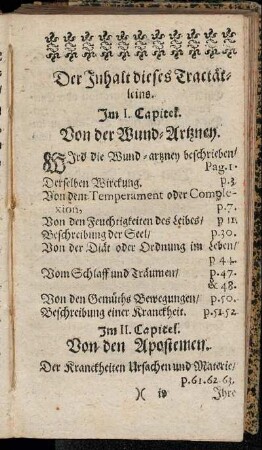 Der Inhalt dieses Tractät-
leins.
Im I. Capitel.
Von der Wund-Artzney.
WIrd die Wund-artzney beschrieben/
Pag.1.
Derselben Wirckung. p.3.
Von dem Temperament oder Comple-
xion, p.7.
Von den Feuchtigkeiten des Leibes/ p 11.
Beschreibung der Seel/ p.30.
Von der Diät oder Ordnung im Leben/
p 44.
Vom Schlaff und Träumen/ p.47.
& 48.
Von den Gemüths Bewegungen/ p.50.
Beschreibung einer Kranckheit. p.51.52.
Im II. Capitel.
Von den Apostemen.
Der Kranckheiten Ursachen und Materie/
p.61.62.63.
)( iv Ihre